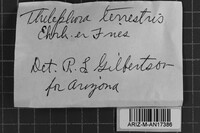 Thelephora terrestris
Ehrh. ex Fries
Det. R. L. Gilbertson
for Arizona
ARIZ-M-AN17386